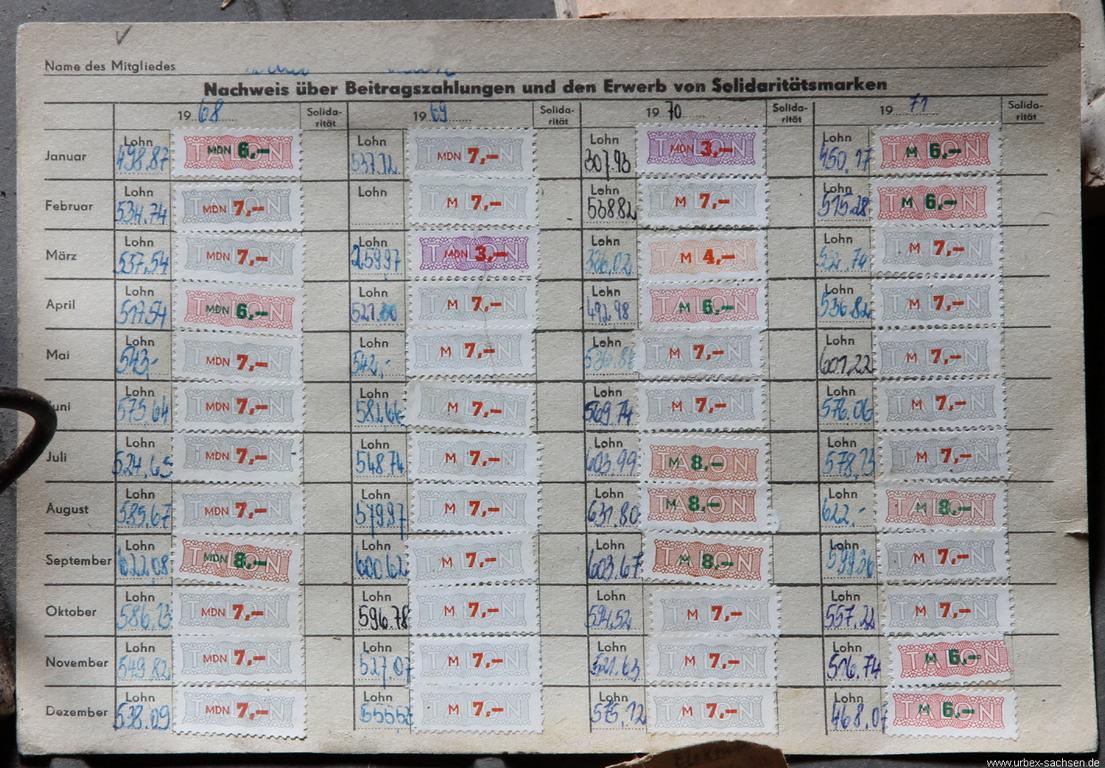 Name des Mitgliedes
Nachweis über Beitragszahlungen und den Erwerb von Solidaritätsmarken
19 68 Solida-rität 19 69 Solida-rität 19 70 Solida-rität 19 71 Solida-rität
Januar Lohn 498.87 MDN 6,– Lohn MDN 7,– Lohn 307.93 MDN 3,– Lohn 450.17 M 6,–
Februar Lohn 534.74 MDN 7,– Lohn M 7,– Lohn 538.82 M 7,– Lohn 515.28 M 6,–
März Lohn 537.54 MDN 7,– Lohn 259.97 MDN 3,– Lohn M 4,– Lohn M 7,–
April Lohn 517.54 MDN 6,– Lohn M 7,– Lohn 492.98 M 6,– Lohn 536.82 M 7,–
Mai Lohn 543,- MDN 7,– Lohn 542,- M 7,– Lohn M 7,– Lohn 601.22 M 7,–
uni Lohn 575.64 MDN 7,– Lohn M 7,– Lohn 569.74 M 7,– Lohn 576.06 M 7,–
Juli Lohn 524.65 MDN 7,– Lohn 548.74 M 7,– Lohn 603.99 M 8,– Lohn M 7,–
August Lohn 585.67 MDN 7,– Lohn 579.97 M 7,– Lohn 631.80 M 8,– Lohn 622,- M 8,–
September Lohn 622.08 MDN 8,– Lohn 600.62 M 7,– Lohn 603.67 M 8,– Lohn M 7,–
Oktober Lohn 586.13 MDN 7,– Lohn 596.78 M 7,– Lohn 594.52 M 7,– Lohn 557.22 M 7,–
November Lohn 549.82 MDN 7,– Lohn 527.07 M 7,– Lohn 521.63 M 7,– Lohn 516.74 M 6,–
Dezember Lohn 538.09 MDN 7,– Lohn M 7,– Lohn 575.12 M 7,– Lohn 468.07 M 6,–
www.urbex-sachsen.de